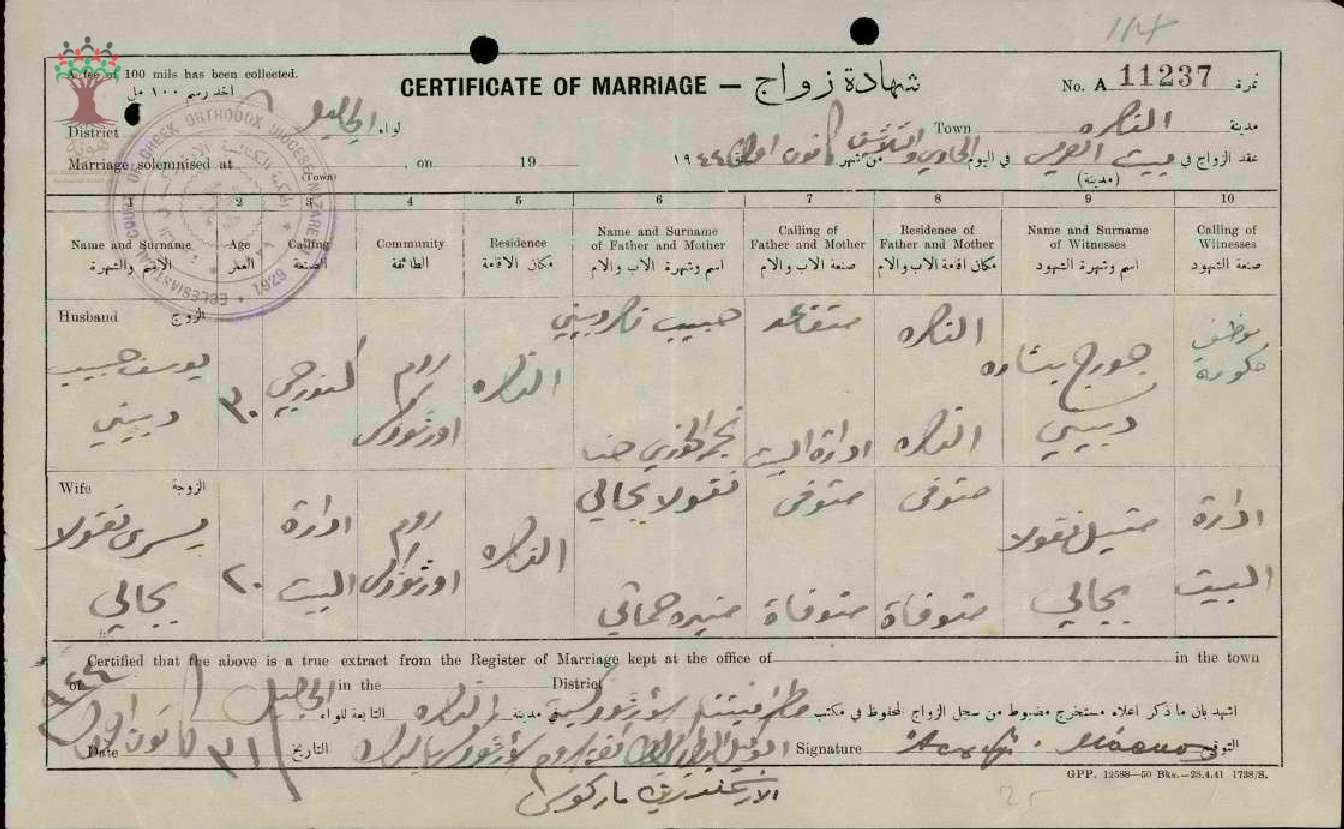 114
A fee of 100 mils has been collected.
اخذ رسم ١٠٠ مل
CERTIFICATE OF MARRIAGE — شهادة زواج
No. A 11237 نمرة
District لواء الجليل
Town الناصره مدينة
Marriage solemnised at (Town) on 19
عقد الزواج في بيت العريس (مدينة) في اليوم الحادي والثلاثين من شهر كانون اول سنة ١٩٤٤
1 2 3 4 5 6 7 8 9 10
Name and Surname الاسم والشهرة
Age العمر
Calling الصنعة
Community الطائفة
Residence مكان الاقامة
Name and Surname of Father and Mother اسم وشهرة الاب والام
Calling of Father and Mother صنعة الاب والام
Residence of Father and Mother مكان اقامة الاب والام
Name and Surname of Witnesses اسم وشهرة الشهود
Calling of Witnesses صنعة الشهود
Husband الزوج
يوسف حبيب
دبيني
٣٠
كندرجي
روم
اورثوذكس
الناصره
حبيب ناصر دبيني
متقاعد
الناصره
نجمه الخوري حنا
ادارة البيت
الناصره
جورج بشاره
دبيني
موظف
حكومة
Wife الزوجة
يسرى نقولا
بجالي
٢٠
ادارة
البيت
روم
اورثوذكس
الناصره
نقولا بجالي
متوفى
متوفى
منيره
متوفاة
متوفاة
نقولا
بجالي
ادارة
البيت
Certified that the above is a true extract from the Register of Marriage kept at the office of in the town
of in the District
اشهد بان ما ذكر اعلاه مستخرج مضبوط من سجل الزواج المحفوظ في مكتب
مدينة الناصره التابعة للواء الجليل
Date ٣١ كانون اول ٩٤٤ التاريخ
Signature التوقيع
الارشمندريت ماركوس
GPP. 12588—50 Bks.—25.4.41 1738/S.
ECCLESIASTICAL COURT OF GREEK ORTHODOX DIOCESE NAZARETH
1929